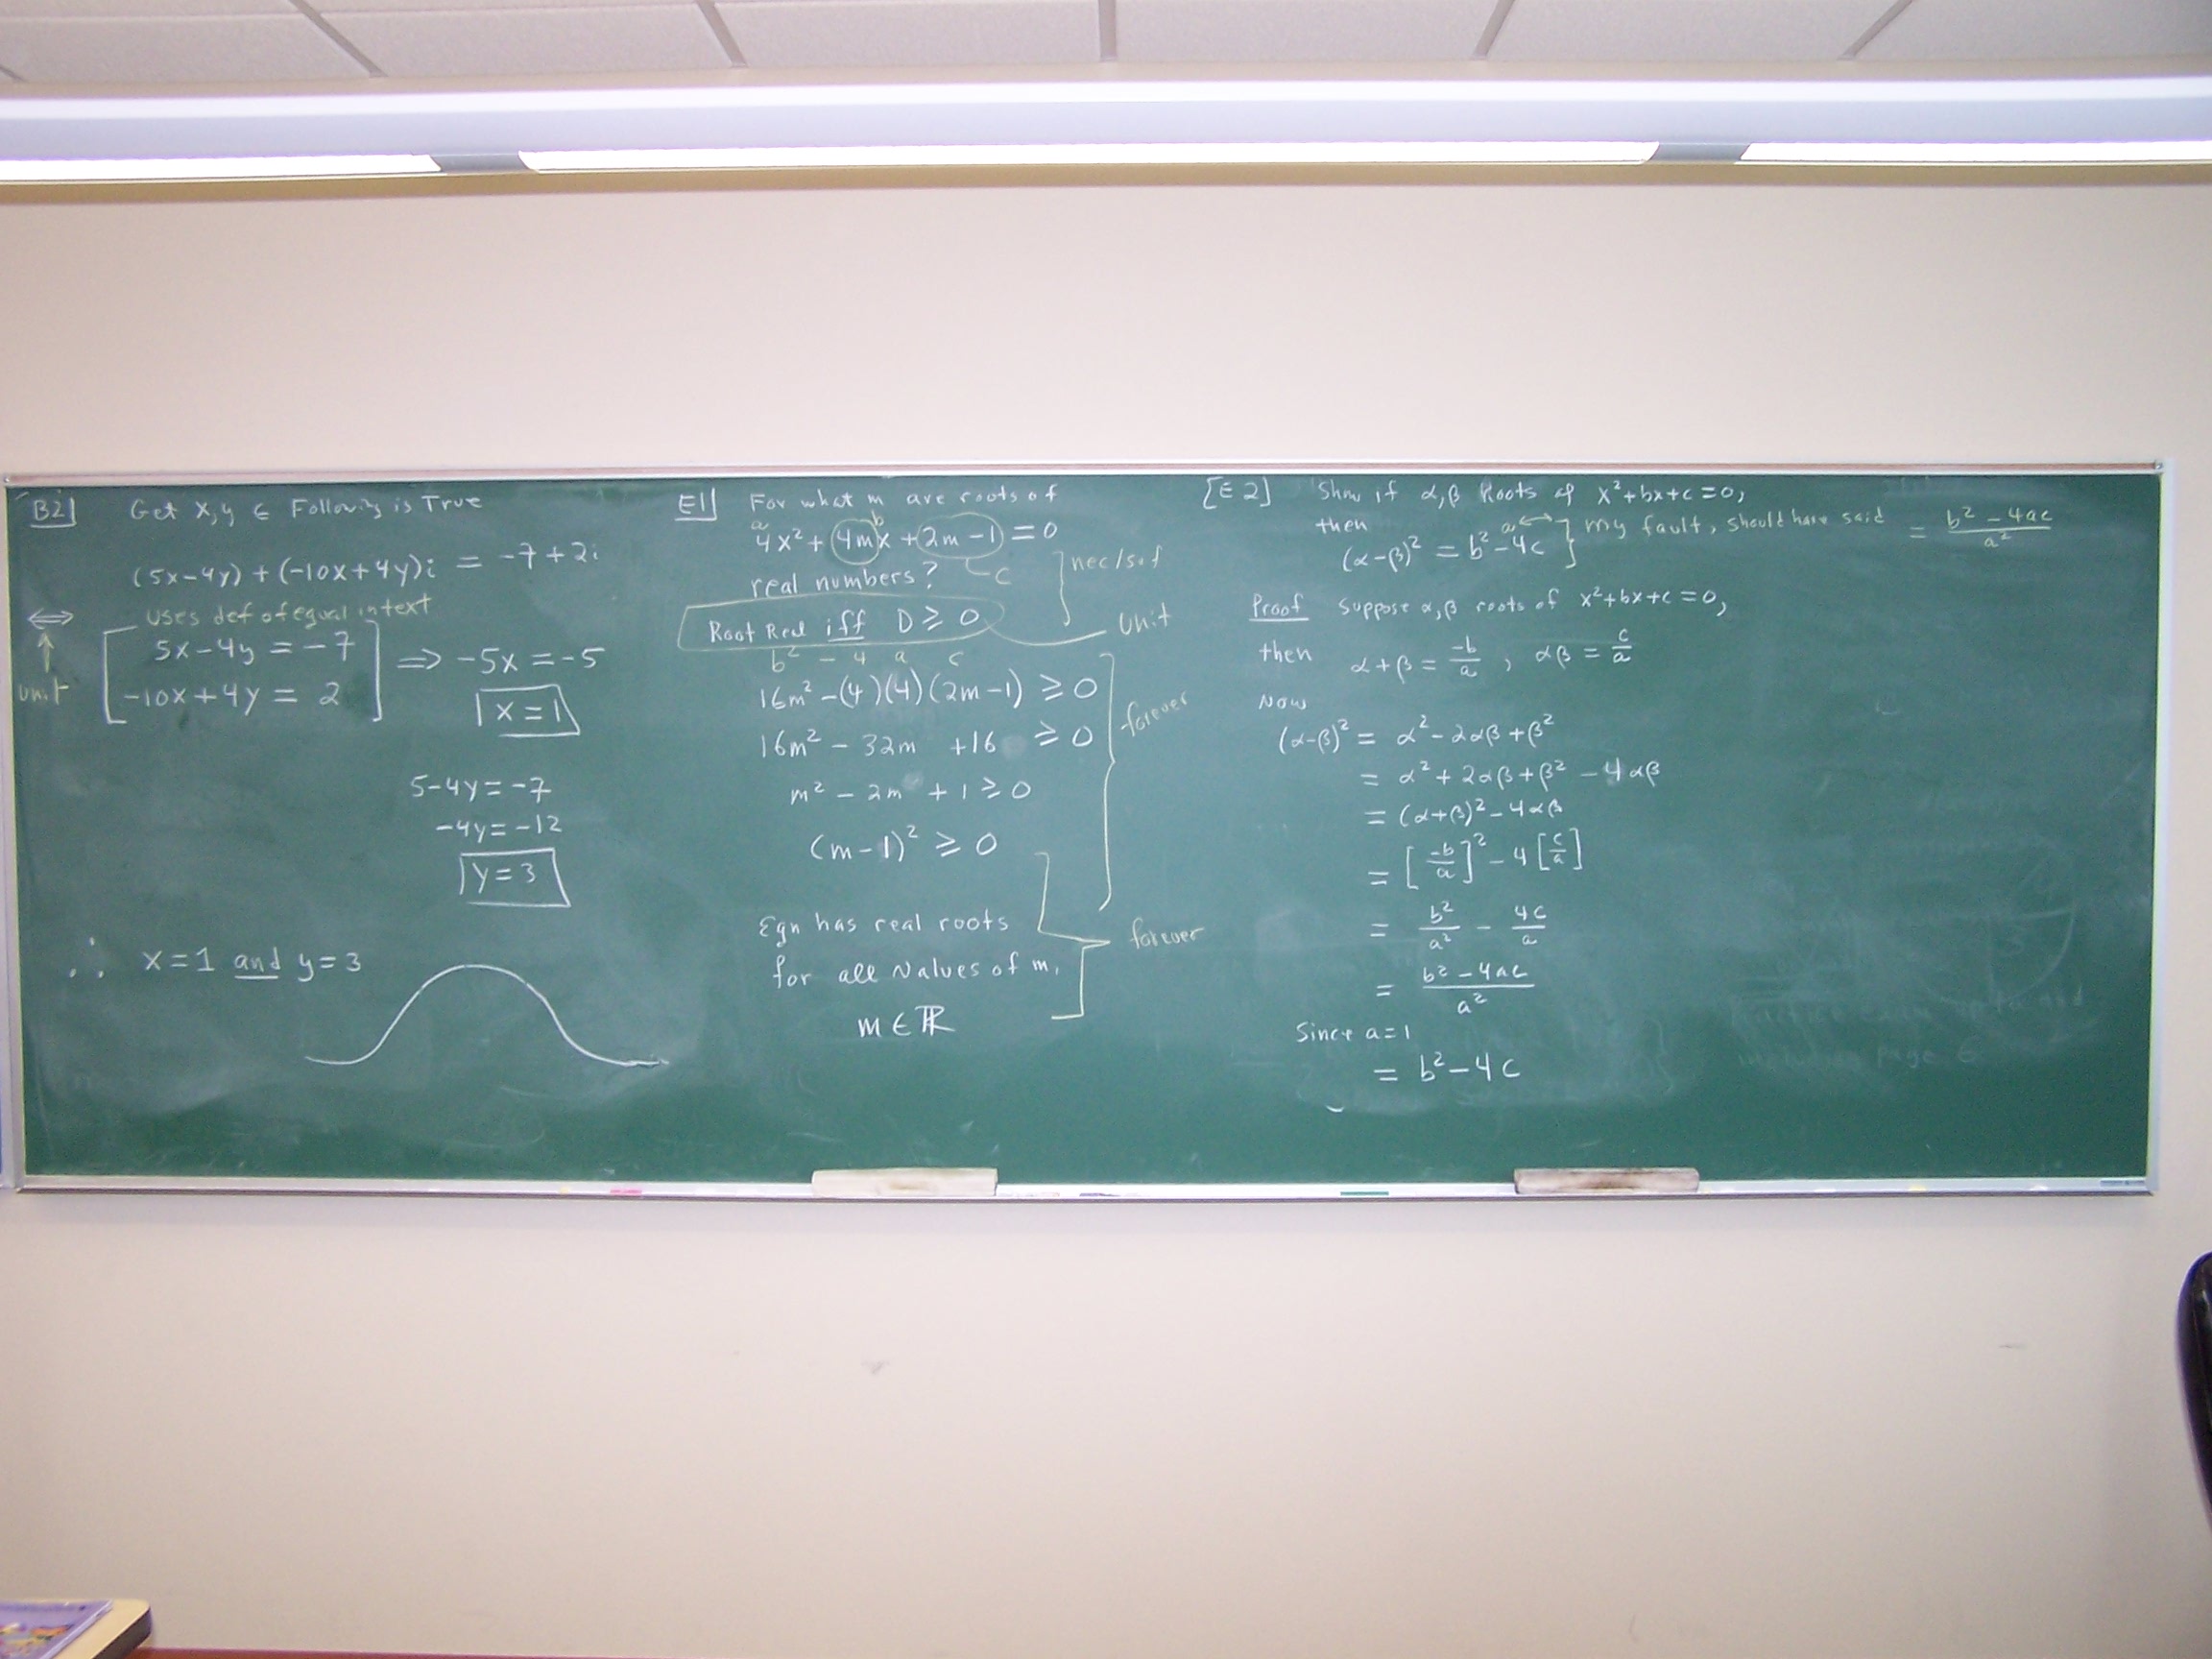 B2] Get x,y ∈ Following is True
(5x-4y) + (-10x+4y)i = -7+2i
⟺ uses def of equal in text
↑ unit
[5x-4y = -7
-10x+4y = 2] ⟹ -5x = -5
x=1
5-4y=-7
-4y=-12
y=3
∴ x=1 and y=3
E1] For what m are roots of
a b
4x² + 4mx + 2m-1 = 0
real numbers? c ] nec/suf
Root Real iff D ≥ 0 unit
b² - 4 a c
16m² -(4)(4)(2m-1) ≥ 0
16m² - 32m +16 ≥ 0 forever
m² - 2m + 1 ≥ 0
(m-1)² ≥ 0
Eqn has real roots
for all values of m, forever
m ∈ ℝ
[E2] Show if α,β Roots of x²+bx+c=0,
then
(α-β)² = b²-4c a ↔ } my fault, should have said = (b²-4ac)/a²
Proof Suppose α,β roots of x²+bx+c=0,
then α+β = -b/a , αβ = c/a
Now
(α-β)² = α²-2αβ+β²
= α²+2αβ+β² -4αβ
= (α+β)²-4αβ
= [-b/a]² - 4[c/a]
= b²/a² - 4c/a
= (b²-4ac)/a²
Since a=1
= b²-4c
page 6